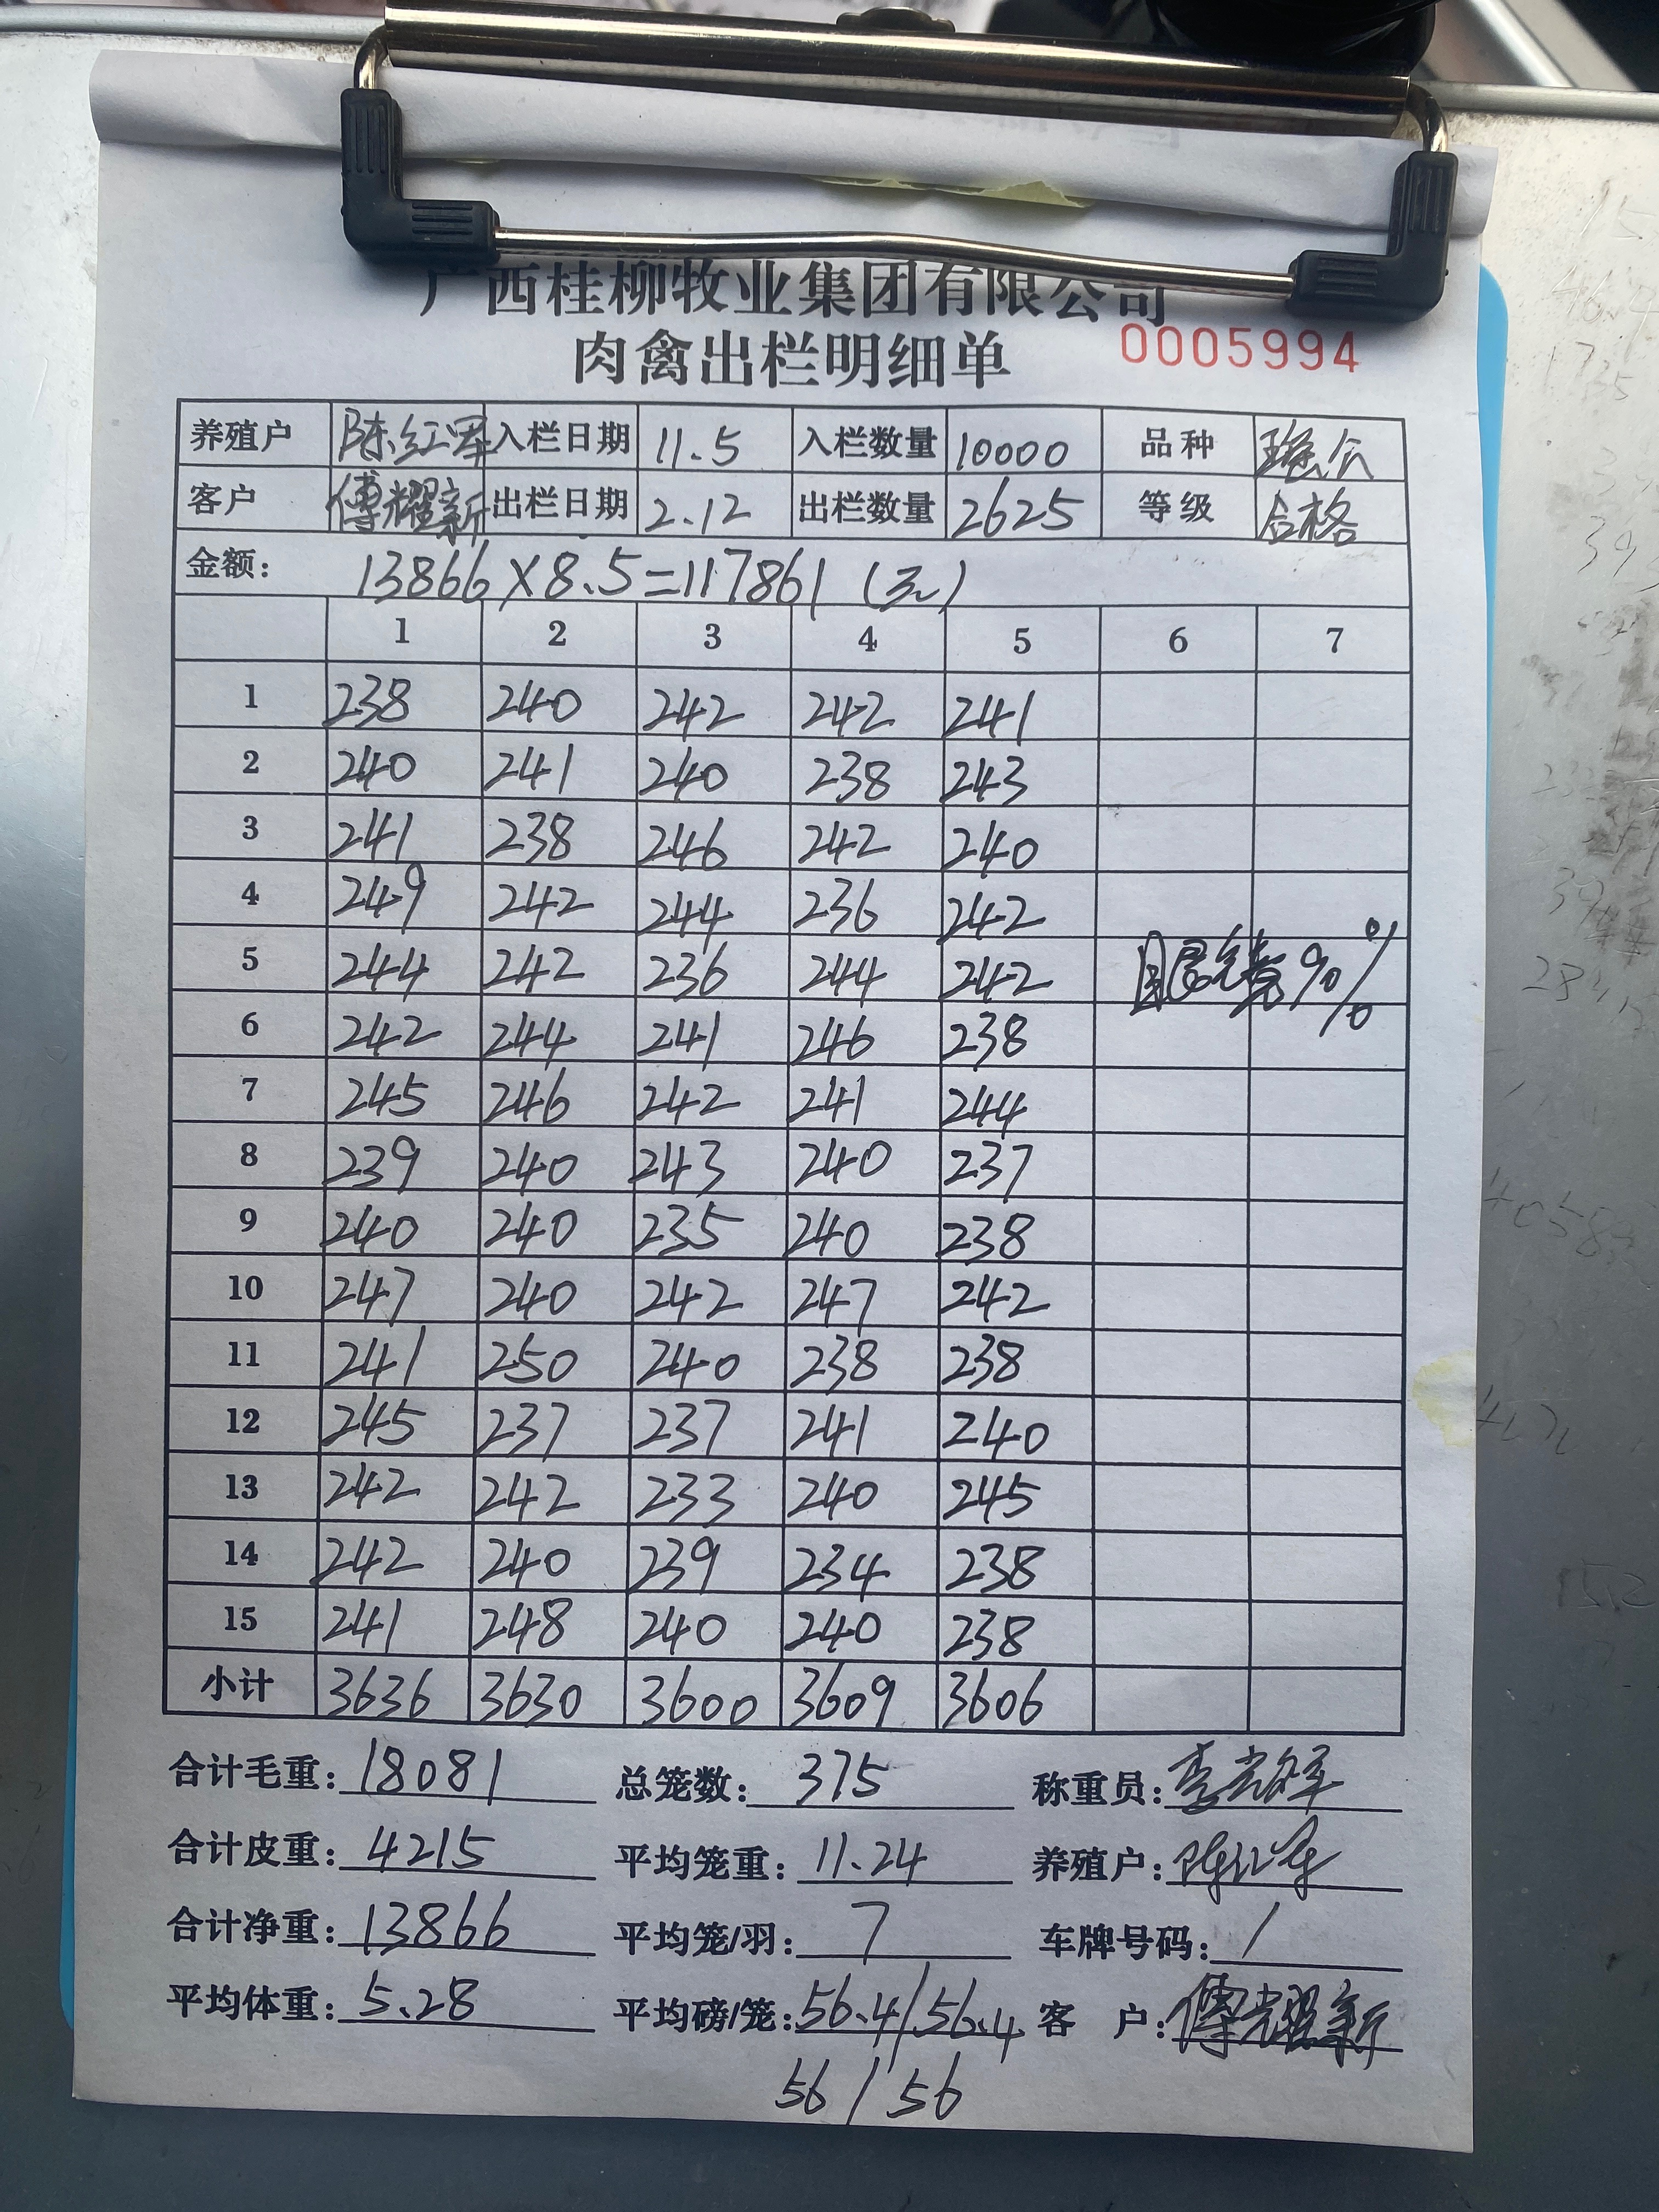 广西桂柳牧业集团有限公司
肉禽出栏明细单 0005994
养殖户 陈红军 入栏日期 11.5 入栏数量 10000 品种
客户 傅耀新 出栏日期 2.12 出栏数量 2625 等级 合格
金额: 13866×8.5=117861(元)
1 2 3 4 5 6 7
1 238 240 242 242 241
2 240 241 240 238 243
3 241 238 246 242 240
4 249 242 244 236 242
5 244 242 236 244 242 90%
6 242 244 241 246 238
7 245 246 242 241 244
8 239 240 243 240 237
9 240 240 235 240 238
10 247 240 242 247 242
11 241 250 240 238 238
12 245 237 237 241 240
13 242 242 233 240 245
14 242 240 239 234 238
15 241 248 240 240 238
小计 3636 3630 3600 3609 3606
合计毛重: 18081 总笼数: 375 称重员:
合计皮重: 4215 平均笼重: 11.24 养殖户: 陈红军
合计净重: 13866 平均笼/羽: 7 车牌号码: /
平均体重: 5.28 平均磅/笼: 56.4/56.4 客 户: 傅耀新
56/56